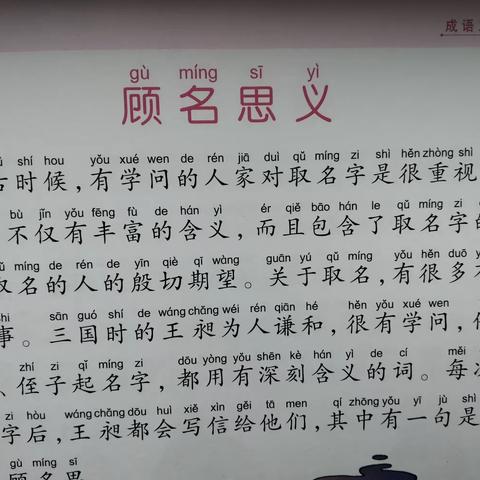 成语
gù míng sī yì
顾名思义
shí hou yǒu xué wen de rén jiā duì qǔ míng zi shì hěn zhòng shì
古时候，有学问的人家对取名字是很重视
bù jǐn yǒu fēng fù de hán yì ér qiě bāo hán le qǔ míng zi
不仅有丰富的含义，而且包含了取名字的
míng de rén de yīn qiè qī wàng guān yú qǔ míng yǒu hěn duō
取名的人的殷切期望。关于取名，有很多
shi sān guó shí de wáng chǎng wéi rén qiān hé hěn yǒu xué wen
事。三国时的王昶为人谦和，很有学问，
zhí zi qǐ míng zi dōu yòng yǒu shēn kè hán yì de cí měi
、侄子起名字，都用有深刻含义的词。每
zi hòu wáng chǎng dōu huì xiě xìn gěi tā men qí zhōng yǒu yī jù shì
字后，王昶都会写信给他们，其中有一句是
gù míng sī
顾名思